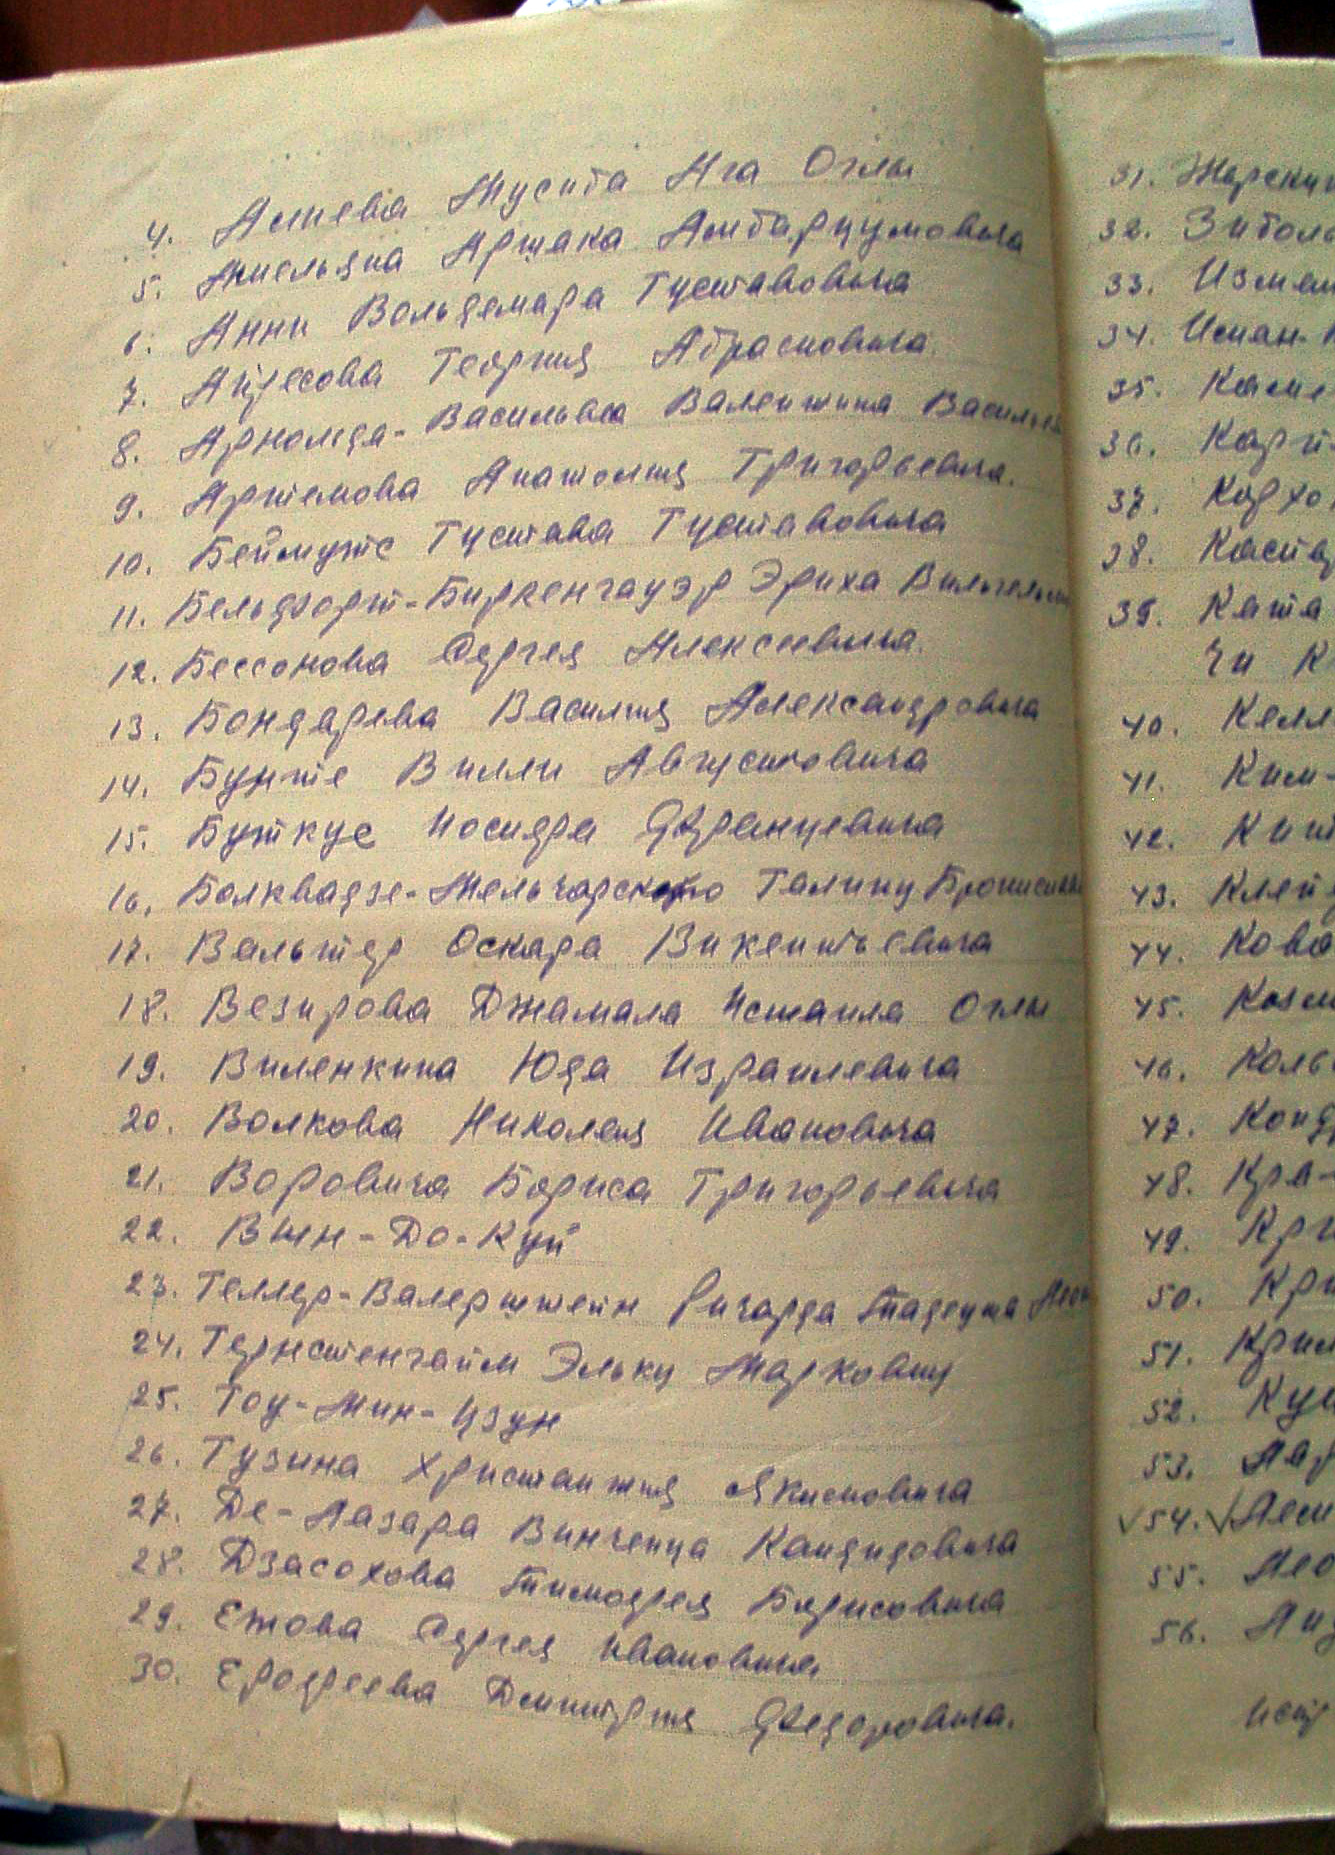 4. Алиева Мусита Ага Оглы
5. Амельяна Аршака Амбарцумовича
6. Анни Вольдемара Густавовича
7. Апресова Георгия Абрамовича.
8. Арнольда-Васильва Валентина Василье
9. Артемова Анатолия Григорьевича.
10. Беймутс Густава Густавовича
11. Бельфорт-Биркенгауэр Эриха Вильгельм
12. Бессонова Сергея Алексеевича.
13. Бондарева Василия Александровича
14. Бунте Вилли Августовича
15. Буткус Иосифа Францевича
16. Болквадзе-Мельчарскую Галину Брониславо
17. Вальтер Оскара Викентьевича
18. Везирова Джамала Исмаила Оглы
19. Виленкина Юда Израилевича
20. Волкова Николая Ивановича
21. Воровича Бориса Григорьевича
22. Вын-До-Куй
23. Геллер-Валерштейн Ричарда Тадеуша Леон
24. Гернстенгайм Эльку Марковну
25. Гоу-Мин-Цзун
26. Гузина Христантия Якимовича
27. Де-Лазара Винченца Кандидовича
28. Дзасохова Тимофея Борисовича
29. Ежова Сергея Ивановича
30. Ерофеева Дмитрия Федоровича.
31. Жарски
32. Зибол
33. Измай
34.
35. Каме
36. Карп
37. Кархо
38. Каспар
39. Ката
Чи К
40. Келл
41. Ким-
42.
43. Клей
44. Кова
45. Козл
46. Коль
47. Конд
48. Кра-
49. Кри
50. Кри
51. Крим
52.
53. Лар
54.
55. Лео
56.